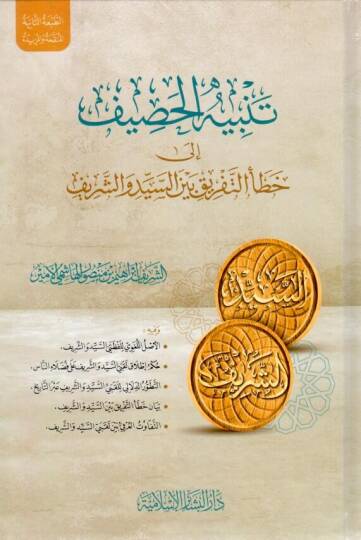 الطبعة الثانية
منقحة ومزيدة
تنبيه الحصيف
إلى
خطأ التفريق بين السيد والشريف
الشريف إبراهيم بن منصور الهاشمي الأمير
السيد
الشريف
وفيه:
الأصل اللغوي للفظتي السيد والشريف.
حكم إطلاق لقبي السيد والشريف على فضلاء الناس.
التطور الدلالي للقبي السيد والشريف عبر التاريخ.
بيان خطأ التفريق بين السيد والشريف.
التفاوت العرفي بين لقبي السيد والشريف.
دار البشائر الإسلامية